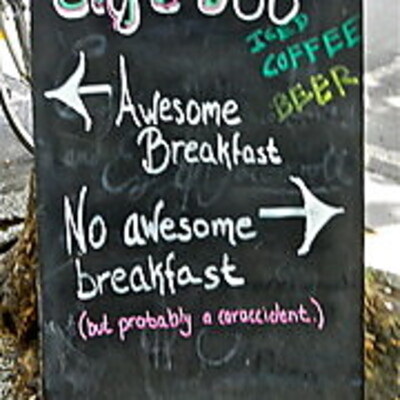 ICED
COFFEE
BEER
Awesome
Breakfast
No awesome
breakfast
(but probably a caraccident.)